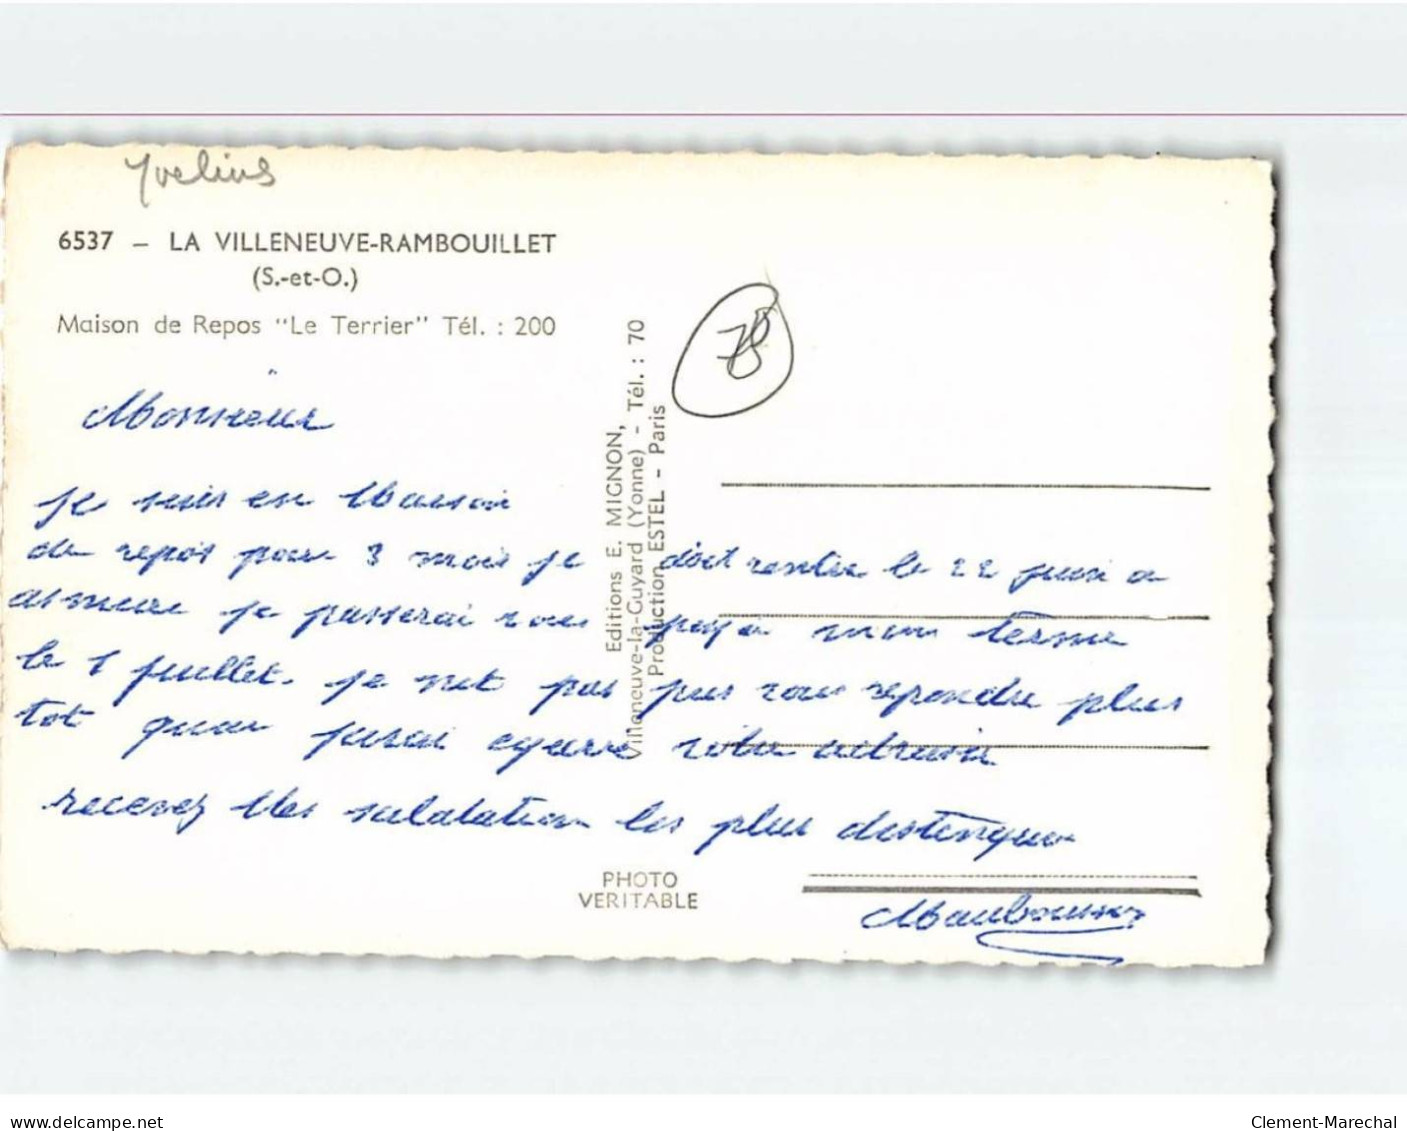 Yvelines
6537 - LA VILLENEUVE-RAMBOUILLET
(S.-et-O.)
Maison de Repos "Le Terrier" Tél. : 200
78
Editions E. MIGNON,
Villeneuve-la-Guyard (Yonne) - Tél. : 70
Production ESTEL - Paris
Monsieur
je suis en Maison
de repos pour 3 mois je doit rentre le 22 juin a
je passerai vous paya mon terme
le 1 juillet. je net pas pus vous repondre plus
tot quar votre
recevez Mes salutation les plus
PHOTO
VERITABLE
delcampe.net
Clement-Marechal